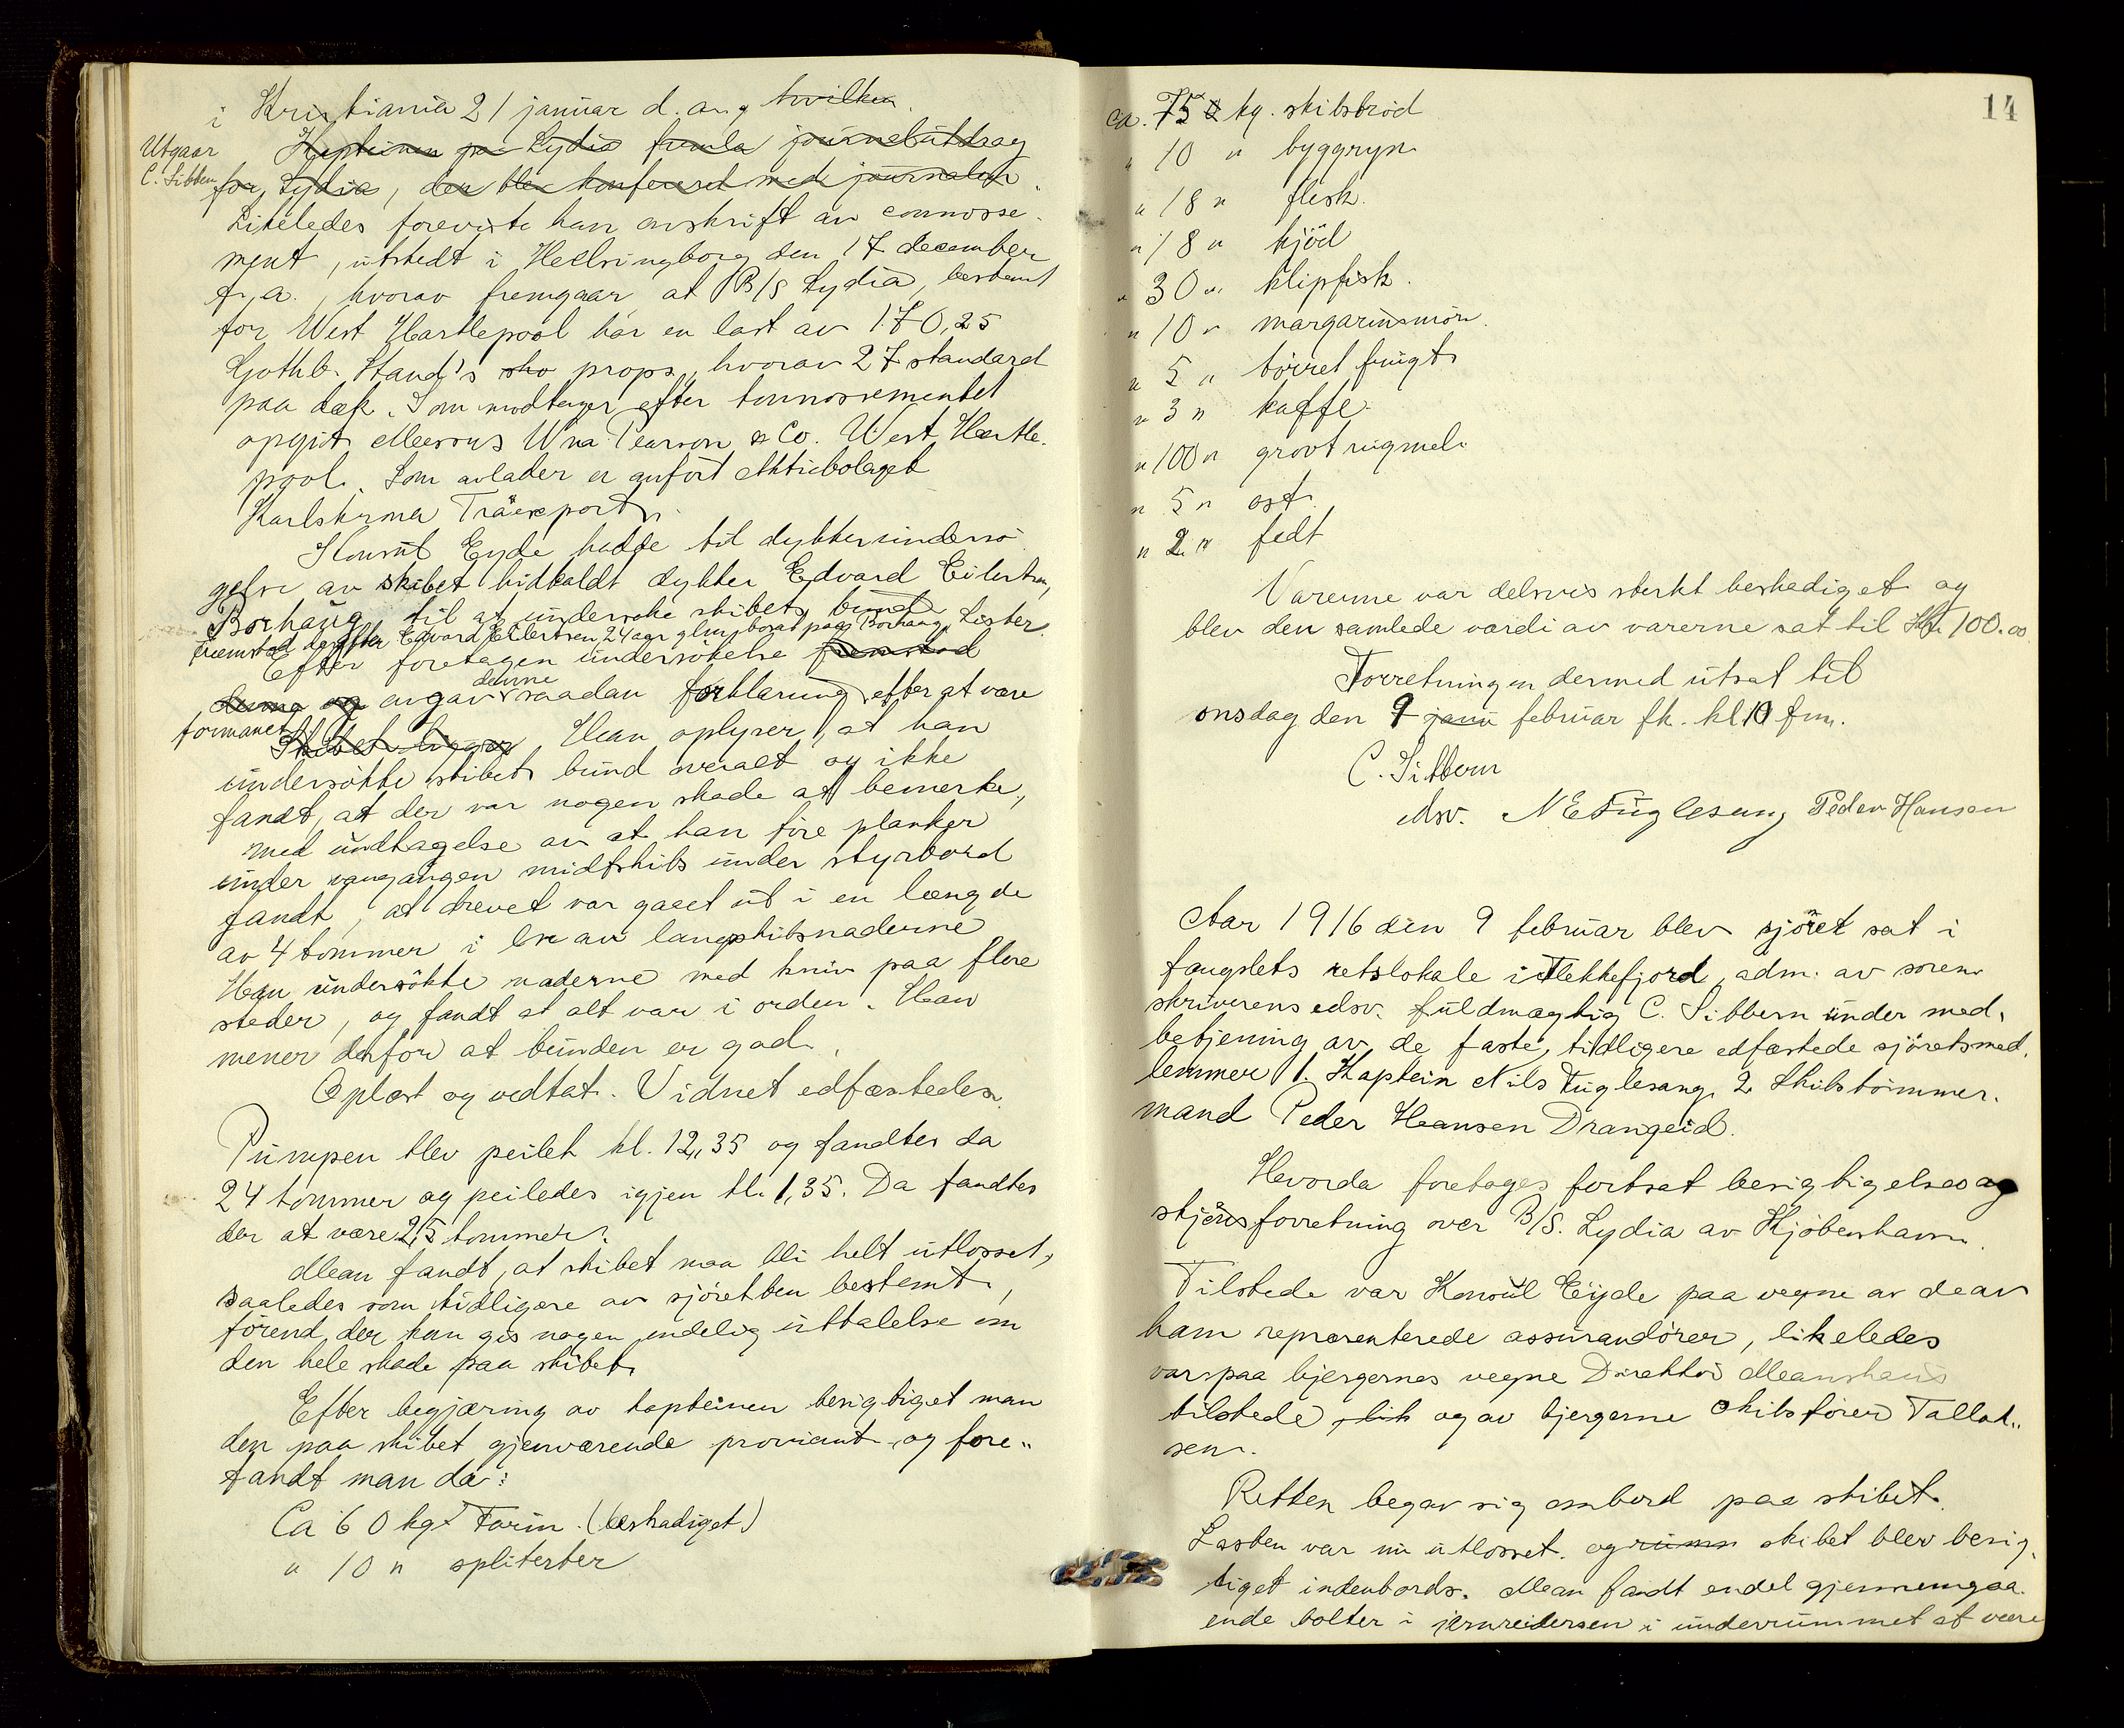 i Kristiania 21 januar d. a. og hvilken.
Utgaar
C. Sibbern
Kapteinen paa Lydia fremla journalutdrag
for Lydia, den blev konfereret med journalen.
Likeledes foreviste han avskrift av connosse-
ment, utstedt i Helsingborg den 17 december
f. a., hvorav fremgaar at B/S Lydia, bestemt
for West Hartlepool har en last av 170,25
Gothb. Stand's sto props, hvorav 27 standard
paa dæk. Som modtager efter konnossementet
opgit Messrs Wm Pearson & Co. West Hartle-
pool. Som avlader er anført Aktiebolaget
Karlskrona Träexport.
Konsul Eyde hadde til dykkerundersø-
gelse av skibet hidkaldt dykker Edvard Eilertsen,
Borhaug til at undersøke skibets bund.
Fremstod derefter Edvard Eilertsen 24 aar glm, bosat paa Borhaug, Lister.
Efter foretagen undersøkelse fremstod
denne og avgav denne saadan forklaring efter at være
formanet
Skibet ligger Han oplyser, at han
undersøkte skibets bund overalt og ikke
fandt, at der var nogen skade at bemerke,
med undtagelse av at han fire planker
under vaugangen midtskibs under styrbord
fandt, at drevet var gaaet ut i en længde
av 4 tommer i en av langskibsnaderne
Han undersøkte naderne med kniv paa flere
steder, og fandt at alt var i orden. Han
mener derfor at bunden er god.
Oplæst og vedtat. Vidnet edfæstedes.
Pumpen blev peilet kl. 12,35 og fandtes da
24 tommer og peiledes igjen kl. 1,35. Da fandtes
der at være 25 tommer.
Man fandt, at skibet maa bli helt utlosset,
saaledes som tidligere av sjøretten bestemt,
førend der kan gis nogen endelig uttalelse om
den hele skade paa skibet.
Efter begjæring av kapteinen besigtiget man
den paa skibet gjenværende proviant og fore-
fandt man da:
Ca 60 kg. Farin. (beskadiget)
" 10 " spliterter
14
ca. 75 kg. skibsbrød
" 10 " byggryn
" 18 " flesk.
" 18 " kjöd
" 30 " klipfisk.
" 10 " margarinsmör.
" 5 " törret frugt
" 3 " kaffe.
" 100 " grovt rugmel.
" 5 " ost.
" 2 " fedt
Varerne var delsvis sterkt beskadiget og
blev den samlede værdi av varerne sat til Kr. 100.00
Forretningen dermed utsat til
onsdag den 9 janu februar fk. kl. 10 fm.
C. Sibbern
edsv. N E Fuglesang Peder Hansen
Aar 1916 den 9 februar blev sjöret sat i
faugslets retslokale i Flekkefjord, adm. av soren-
skriverens edsv. fuldmægtig C. Sibbern under med-
betjening av de faste, tidligere edfæstede sjöretsmed-
lemmer 1. Kaptein Nils Fuglesang, 2 Skibstömmer-
mand Peder Hansen Drangeid.
Hvorda foretages fortsat besigtigelses og
skjönsforretning over B/S. Lydia av Kjöbenhavn.
Tilstede var Konsul Eyde paa vegne av de av
ham repræsenterede assurandører, likeledes
var paa bjergernes vegne Direktör Manshaus
tilstede, lik og av bjergerne skibsförer Tallak-
sen.
Retten begav sig ombord paa skibet.
Lasten var nu utlosset. og rumm skibet blev besig-
tiget indenbords. Man fandt endel gjennemgaa-
ende bolter i jernreidersen i underrummet at være